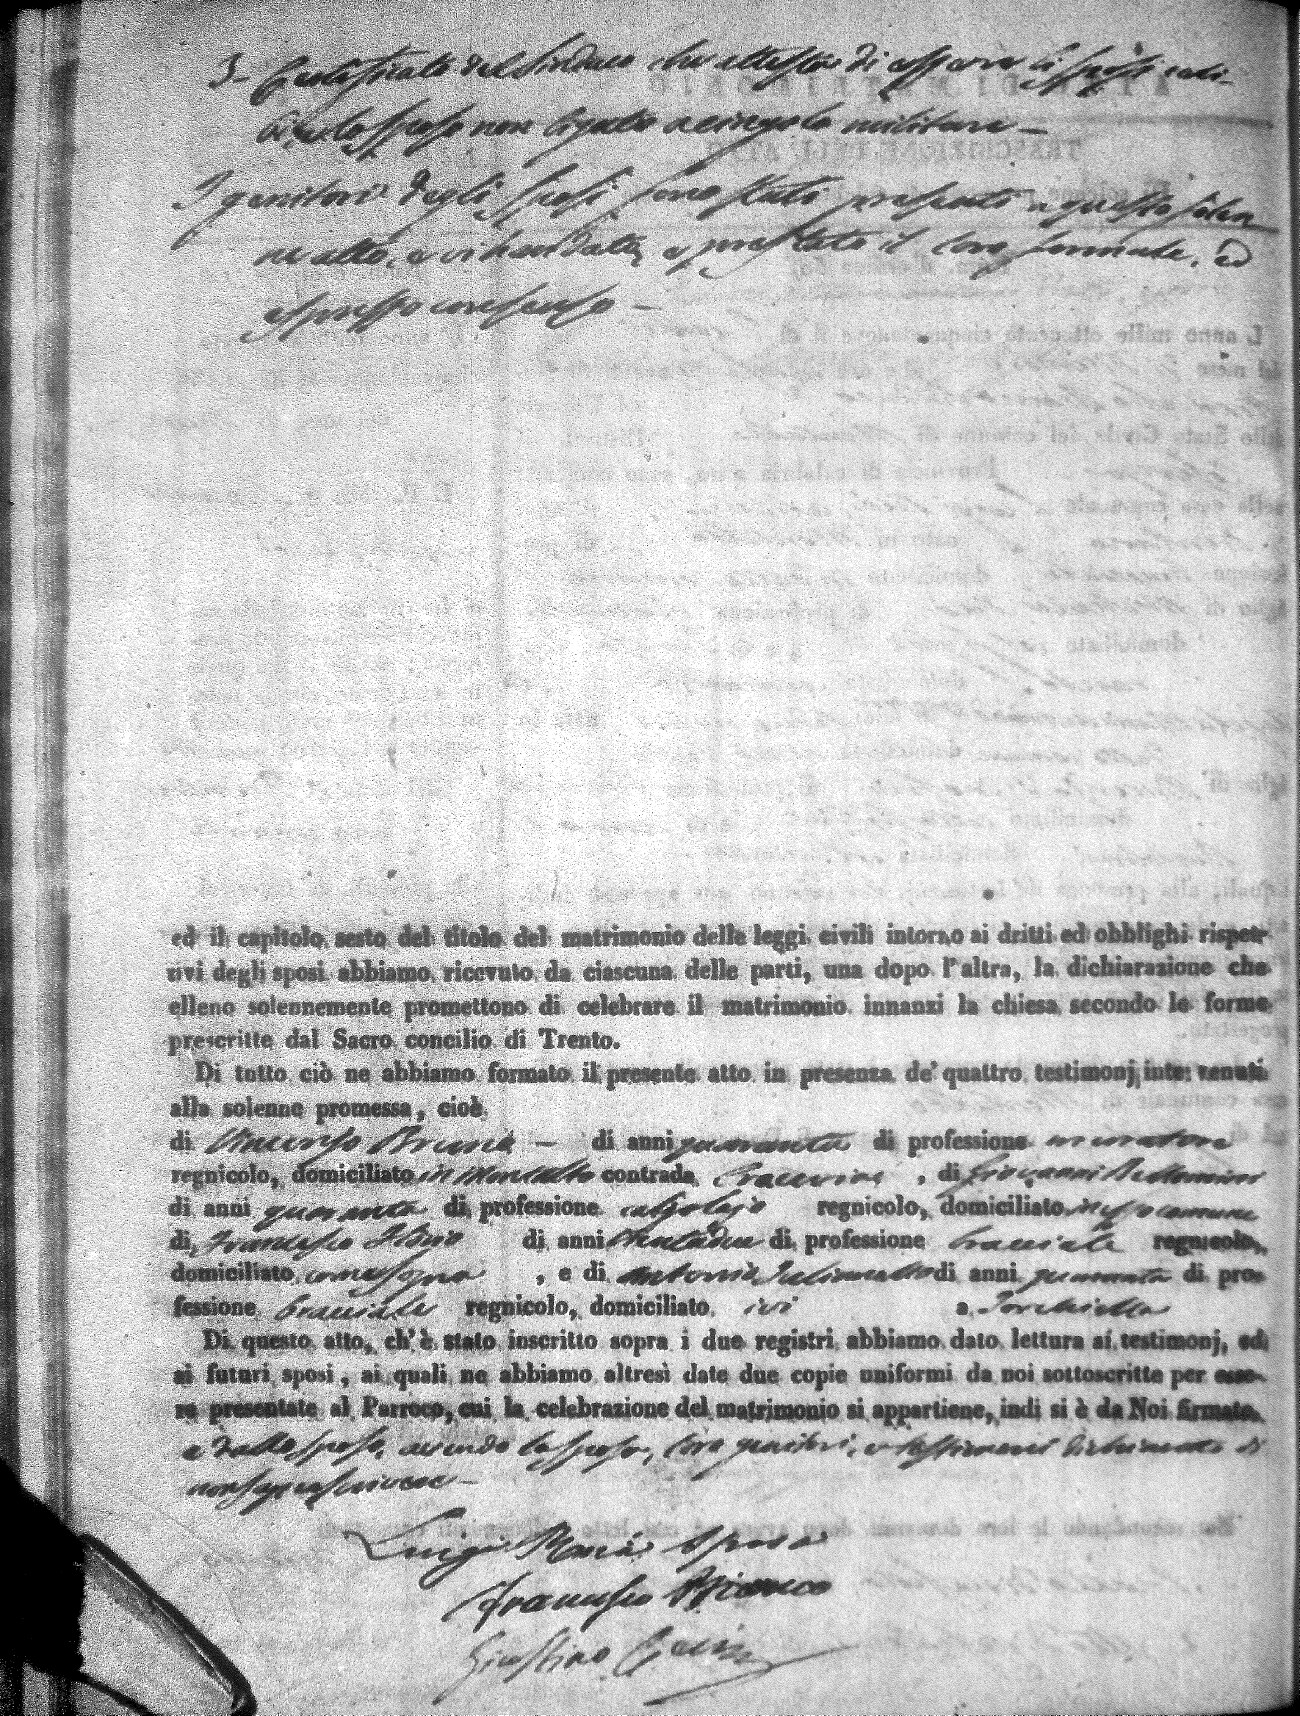 5 – Certificato del Sindaco che attesta di essere li sposi celi-
bi, e lo sposo non ligato a cingolo militare –
I genitori degli sposi sono stati presenti a questo solen
ne atto, e vi han dato, e prestato il loro formale, ed
espresso consenso –
ed il capitolo sesto del titolo del matrimonio delle leggi civili intorno ai dritti ed obblighi rispet-
tivi degli sposi abbiamo ricevuto da ciascuna delle parti, una dopo l'altra, la dichiarazione che
elleno solennemente promettono di celebrare il matrimonio innanzi la chiesa secondo le forme
prescritte dal Sacro concilio di Trento.
Di tutto ciò ne abbiamo formato il presente atto in presenza de' quattro testimonj intervenuti
alla solenne promessa, cioè
di Vincenzo Bruno – di anni quaranta di professione muratore
regnicolo, domiciliato in Montalto contrada , di Giovanni
di anni quaranta di professione calzolajo regnicolo, domiciliato in esso comune
di Francesco di anni di professione bracciale regnicolo,
domiciliato come sopra , e di Antonio di anni quaranta di pro-
fessione bracciale regnicolo, domiciliato ivi a
Di questo atto, ch'è stato inscritto sopra i due registri abbiamo dato lettura ai testimonj, ed
ai futuri sposi, ai quali ne abbiamo altresì date due copie uniformi da noi sottoscritte per esse-
re presentate al Parroco, cui la celebrazione del matrimonio si appartiene, indi si è da Noi firmato
e dallo sposo, avendo la sposa, loro genitori, e testimoni dichiarato di
non saper scrivere –
Luigi Maria sposo
Francesco Bianco
Giustino